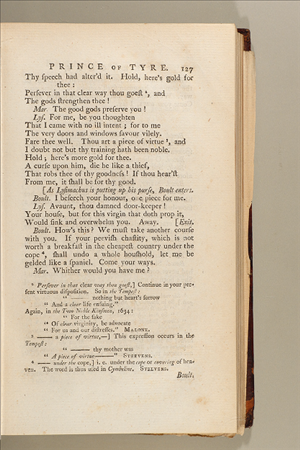 PRINCE OF TYRE. 127
Thy ſpeech had alter'd it. Hold, here's gold for
thee:
Perſever in that clear way thou goeſt ², and
The gods ſtrengthen thee!
Mar. The good gods preſerve you!
Lyſ. For me, be you thoughten
That I came with no ill intent; for to me
The very doors and windows ſavour vilely.
Fare thee well. Thou art a piece of virtue ³, and
I doubt not but thy training hath been noble.
Hold; here's more gold for thee.
A curſe upon him, die he like a thief,
That robs thee of thy goodneſs! If thou hear'ſt
From me, it ſhall be for thy good.
[As Lyſimachus is putting up his purſe, Boult enters.
Boult. I beſeech your honour, one piece for me.
Lyſ. Avaunt, thou damned door-keeper!
Your houſe, but for this virgin that doth prop it,
Would ſink and overwhelm you. Away. [Exit.
Boult. How's this? We muſt take another courſe
with you. If your peeviſh chaſtity, which is not
worth a breakfaſt in the cheapeſt country under the
cope ⁴, ſhall undo a whole houſhold, let me be
gelded like a ſpaniel. Come your ways.
Mar. Whither would you have me?
² Perſever in that clear way thou goeſt,] Continue in your pre-
ſent virtuous diſpoſition. So in the Tempeſt:
" —— nothing but heart's ſorrow
" And a clear life enſuing."
Again, in the Two Noble Kinſmen, 1634:
" For the ſake
" Of clear virginity, be advocate
" For us and our diſtreſſes." MALONE.
³ —— a piece of virtue,—] This expreſſion occurs in the
Tempeſt:
" —— thy mother was
" A piece of virtue——" STEEVENS.
⁴ —— under the cope,] i. e. under the cope or covering of hea-
ven. The word is thus uſed in Cymbeline. STEEVENS.
Boult.